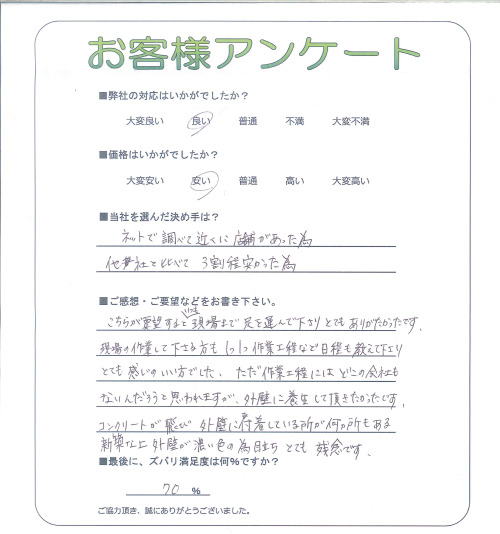 お客様アンケート
■弊社の対応はいかがでしたか？
大変良い 良い 普通 不満 大変不満
■価格はいかがでしたか？
大変安い 安い 普通 高い 大変高い
■当社を選んだ決め手は？
ネットで調べて近くに店舗があった為
他業社と比べて 3割程安かった為
■ご感想・ご要望などをお書き下さい。
いつも
こちらが要望すると現場まで足を運んで下さりとてもありがたかったです。
現場の作業して下さる方も 1つ1つ作業工程など日程も教えて下さり
とても感じのいい方でした。ただ作業工程にはどこの会社も
ないんだろうと思われますが、外壁に養生して頂きたかったです。
コンクリートが飛び 外壁に付着している所が何ヶ所もある
新築な上 外壁が濃い色の為目立ち とても 残念です。
■最後に、ズバリ満足度は何%ですか？
70 %
ご協力頂き、誠にありがとうございました。